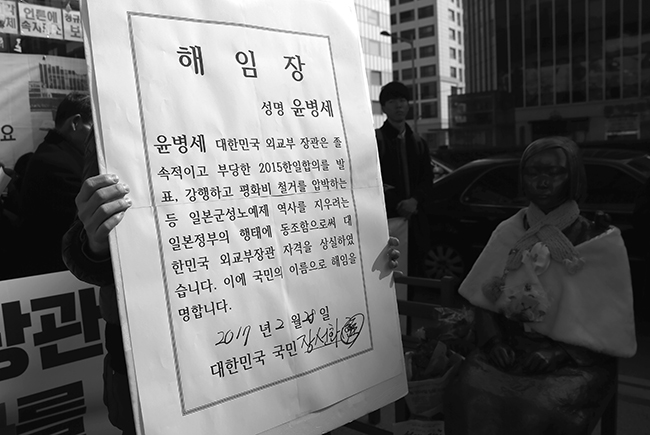 언론에
해 임 장
성명 윤병세
윤병세 대한민국 외교부 장관은 졸
속적이고 부당한 2015한일합의를 발
표, 강행하고 평화비 철거를 압박하는
등 일본군성노예제 역사를 지우려는
일본정부의 행태에 동조함으로써 대
한민국 외교부장관 자격을 상실하였
습니다. 이에 국민의 이름으로 해임을
명합니다.
2017 년 2 월 28 일
대한민국 국민
장관
요